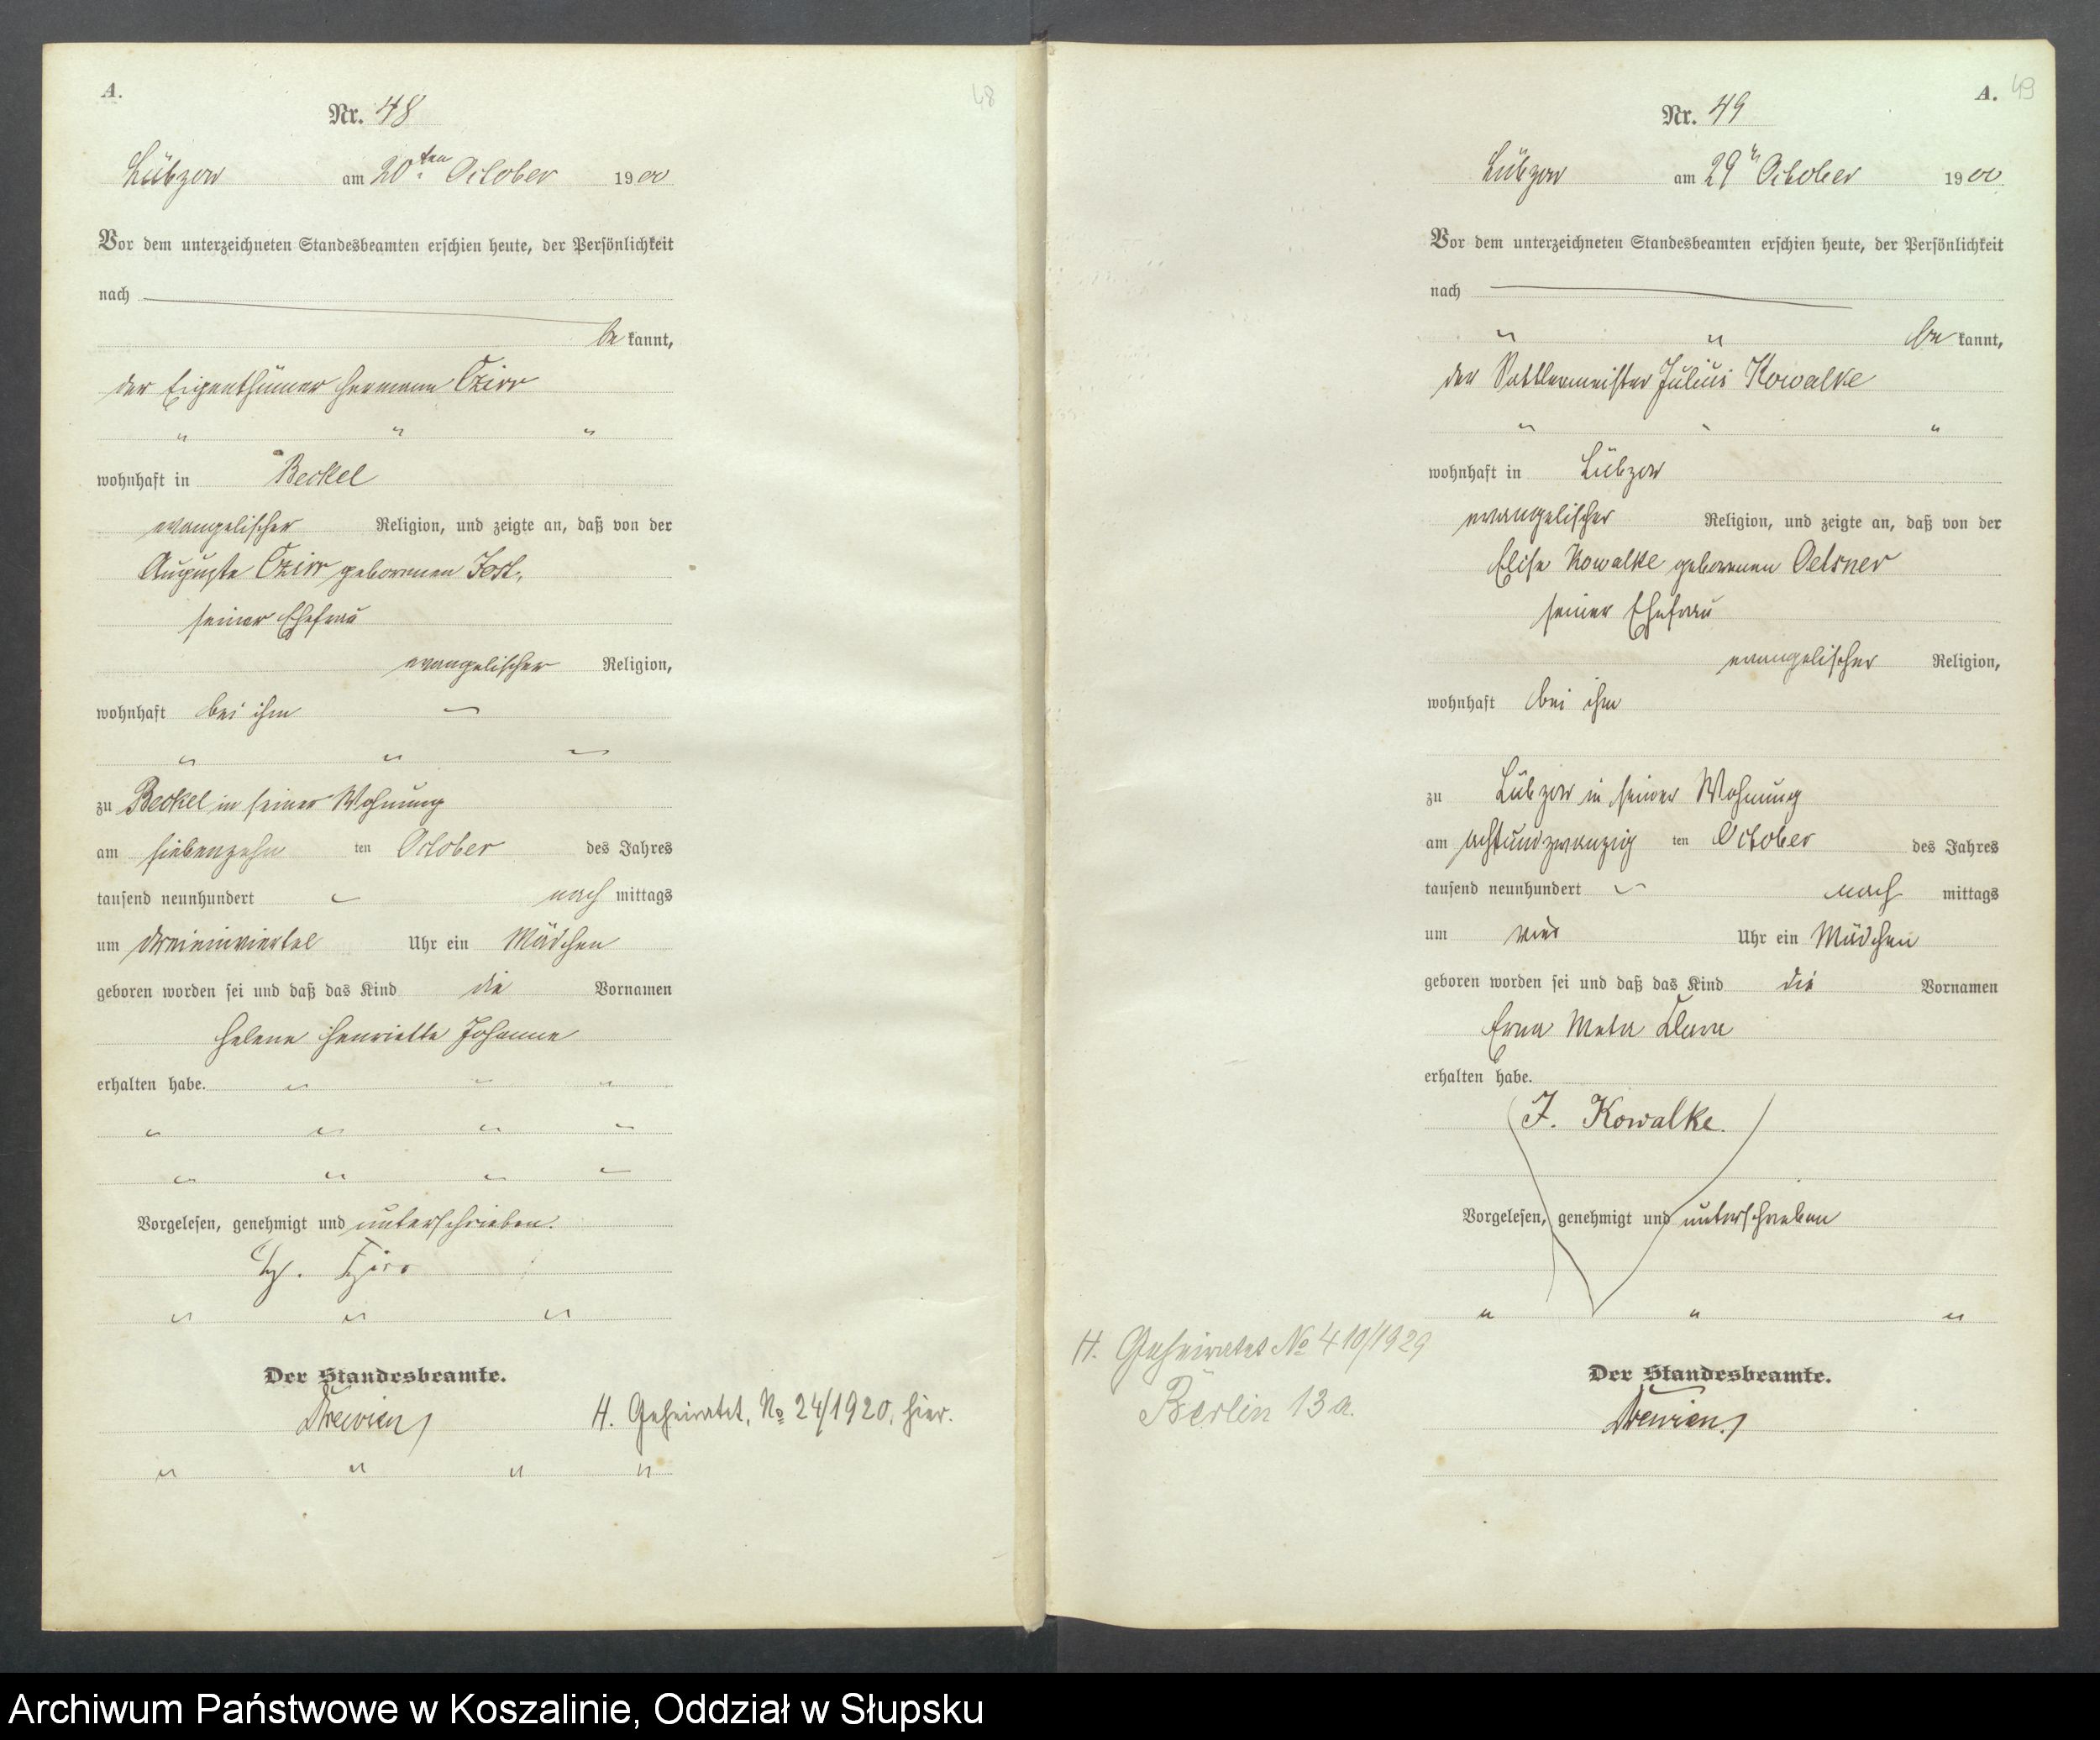 A.
48
Nr. 48
Lübzow am 20ten October 1900
Vor dem unterzeichneten Standesbeamten erschien heute, der Persönlichkeit
nach
be kannt,
der Eigenthümer Hermann Czirr
wohnhaft in Beckel
evangelischer Religion, und zeigte an, daß von der
Auguste Czirr geborenen Jost,
seiner Ehefrau
evangelischer Religion,
wohnhaft bei ihm
zu Beckel in seiner Wohnung
am siebenzehn ten October des Jahres
tausend neunhundert nach mittags
um dreieinviertel Uhr ein Mädchen
geboren worden sei und daß das Kind die Vornamen
Helene Henriette Johanne
erhalten habe.
Vorgelesen, genehmigt und unterschrieben.
Der Standesbeamte.
Drewien
H. Geheiratet, No 24/1920, hier.
A. 49
Nr. 49
Lübzow am 29ten October 1900
Vor dem unterzeichneten Standesbeamten erschien heute, der Persönlichkeit
nach
be kannt,
der Sattlermeister Julius Kowalke
wohnhaft in Lübzow
evangelischer Religion, und zeigte an, daß von der
Elise Kowalke geborenen Oelsner
seiner Ehefrau
evangelischer Religion,
wohnhaft bei ihm
zu Lübzow in seiner Wohnung
am achtundzwanzig ten October des Jahres
tausend neunhundert nach mittags
um vier Uhr ein Mädchen
geboren worden sei und daß das Kind die Vornamen
Erna Meta Klara
erhalten habe.
J. Kowalke.
Vorgelesen, genehmigt und unterschrieben
H. Geheiratet No 410/1929
Berlin 13a.
Der Standesbeamte.
Drewien
Archiwum Państwowe w Koszalinie, Oddział w Słupsku